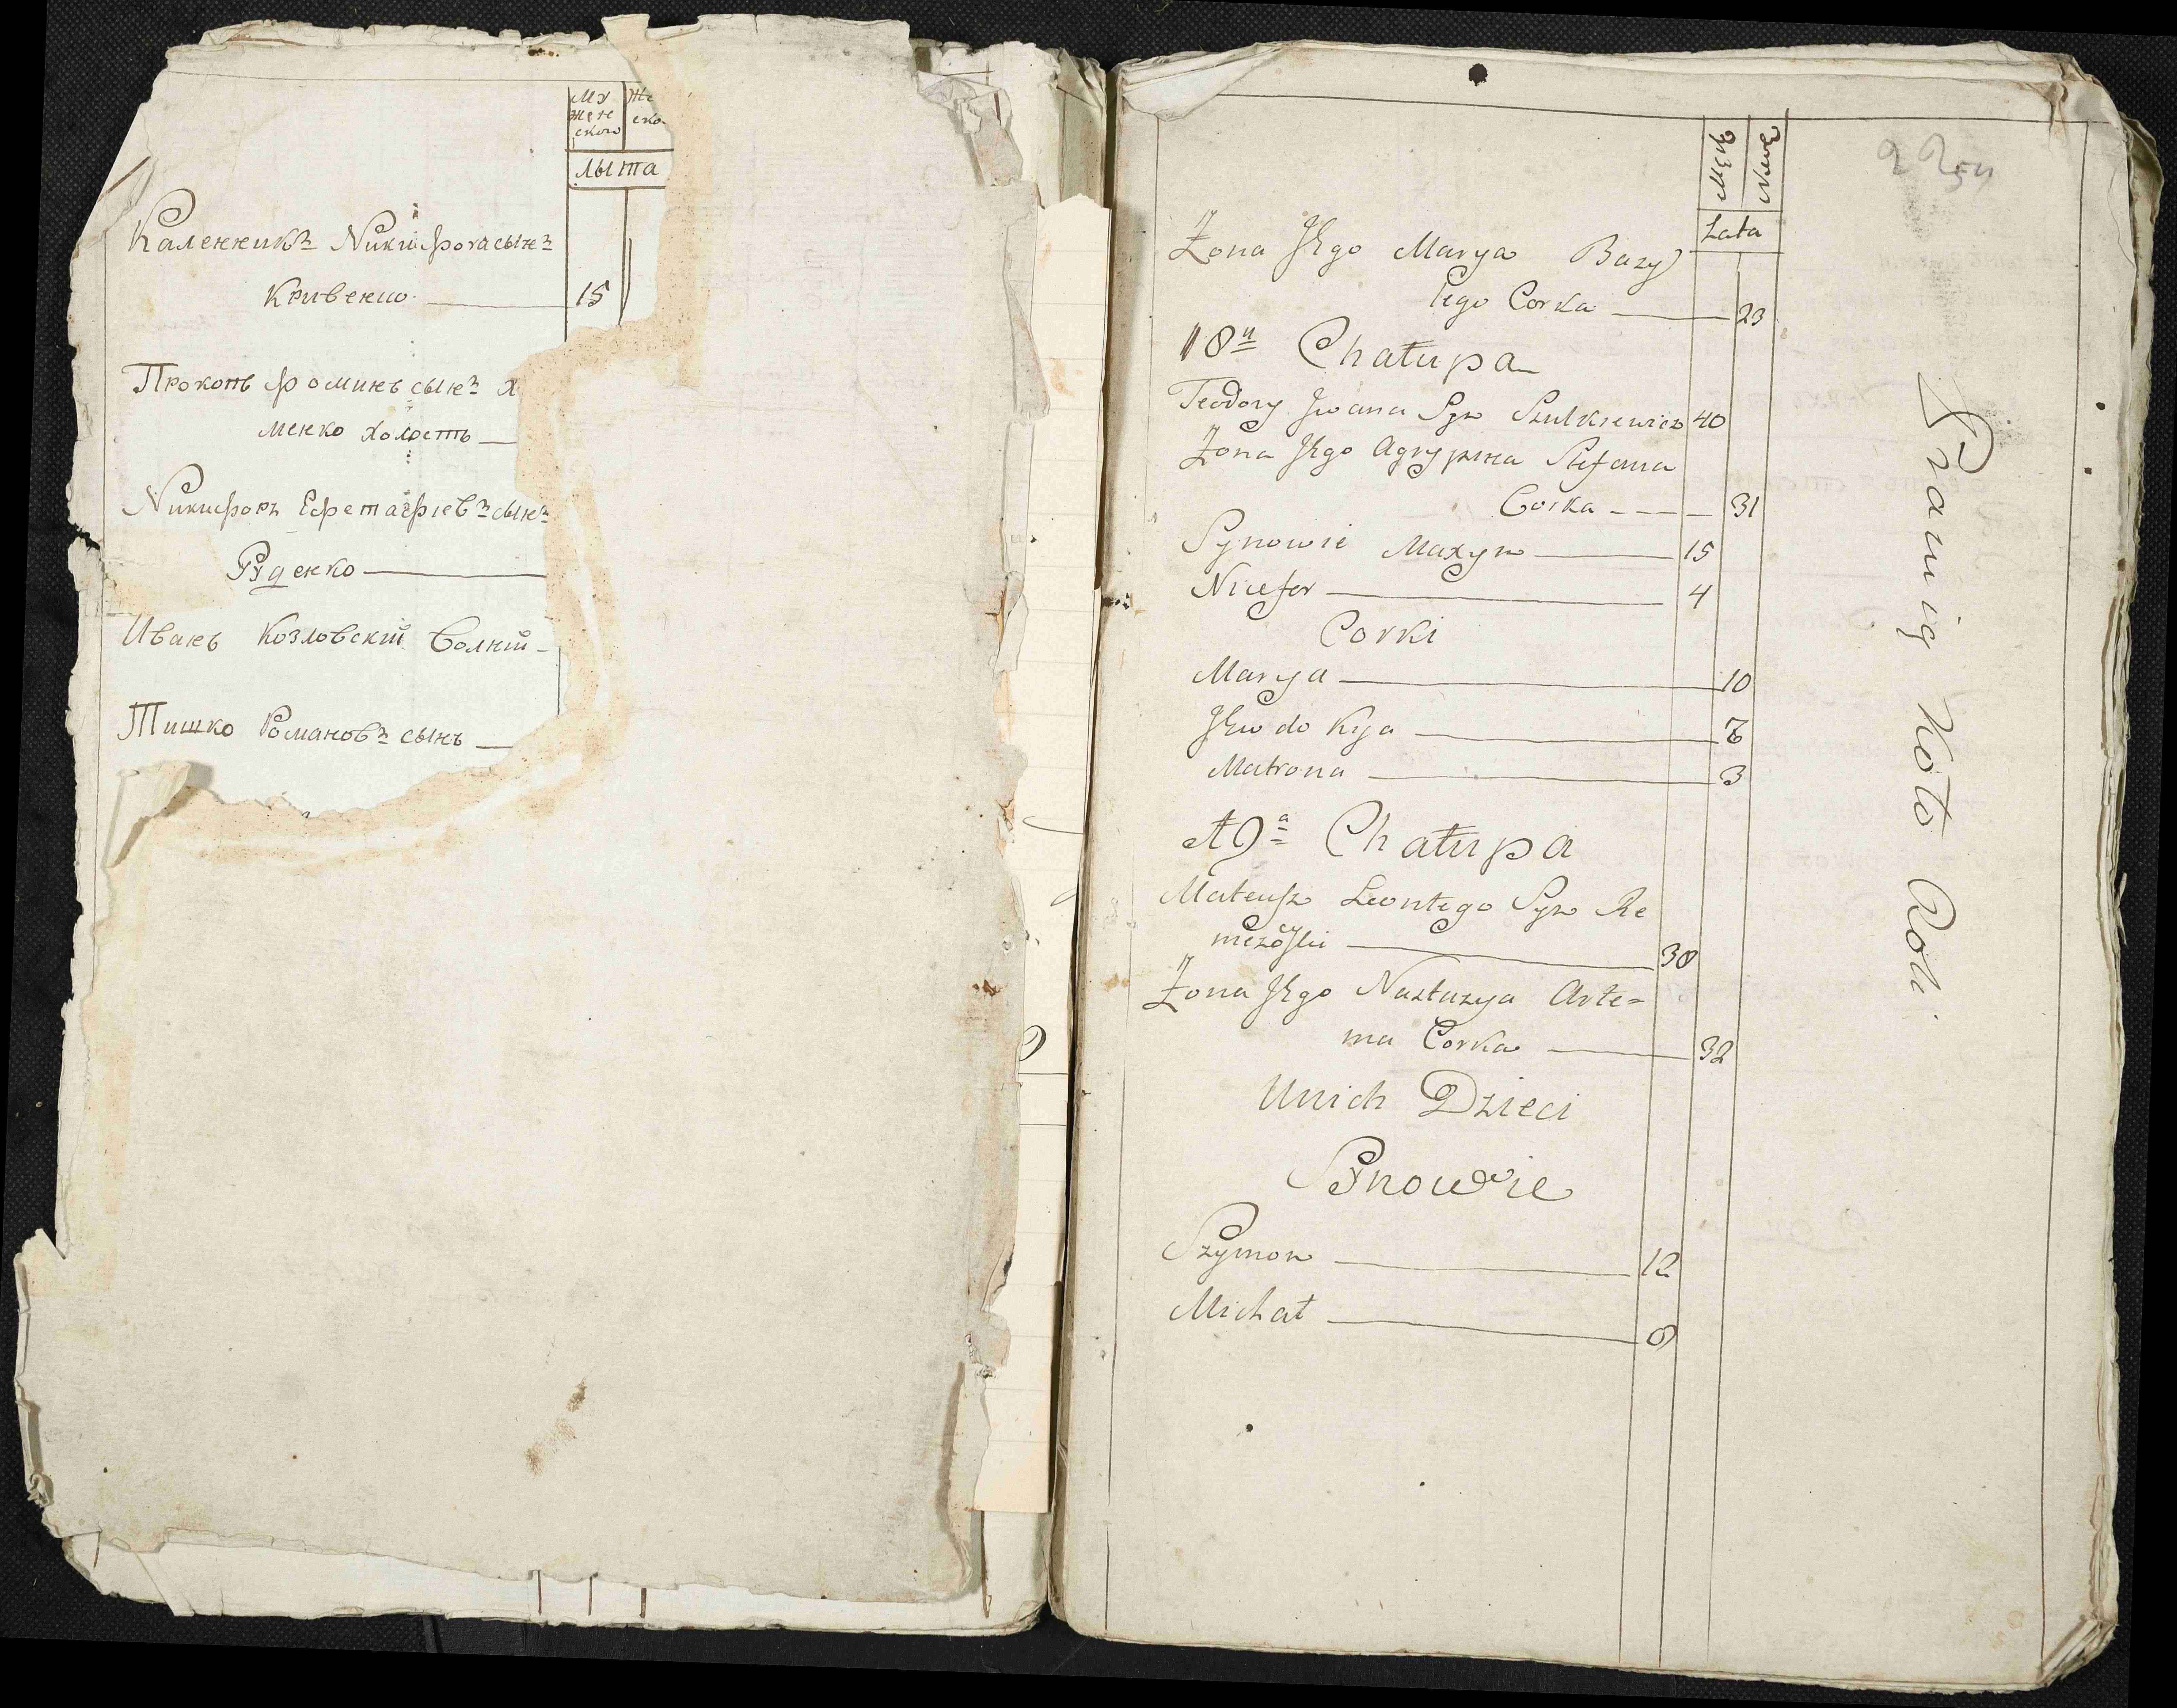 Му Же
жен ско
ского
лыта
Каленникъ Никифора сынъ
Кривенко 15
Прокопъ Фоминъ сынъ Х
менко холостъ
Никифоръ Ефстафіевъ сынъ
Руденко
Иванъ Козловскій Волній
Тишко Романовъ сынъ
Męzk Niwe
Lata
Zona Jego Marya Bazy
lego Corka 23
18ª Chałupa
Teodory Jwana Syn Szulkiewicz 40
Zona Jego Agrypina Stefana
Corka 31
Synowie Maxym 15
Nicefor 4
Corki
Marya 10
Jewdokya 6
Matrona 3
19ª Chałupa
Mateusz Leontego Syn Re
38
Zona Jego Nastazya Arte=
ma Corka 32
Unich Dzieci
Synowie
Szymon 12
Michał 8
Koło Roli